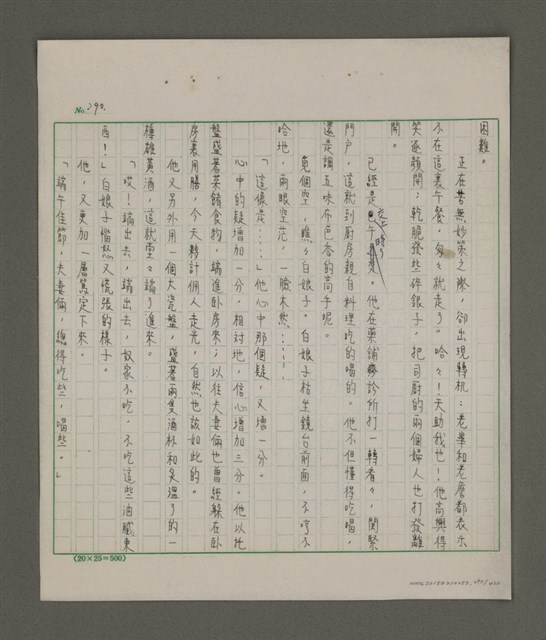 No. 290.
困難。
正在苦無妙策之際，卻出現轉机：老華和老詹都表示
不在這裏午餐，匆々就走了。哈々！天助我也！他高興得
笑逐顏開；乾脆發些碎銀子，把司厨的兩個婦人也打發離
開。
已經是午時了。他在藥舖診所打一轉看々，関緊
門户，這就到厨房親自料理吃的喝的。他不但懂得吃喝，
還是調五味布色香的高手呢。
覓個空，瞧々白娘子。白娘子枯坐鏡台前面，不哼不
哈地，兩眼空茫，一臉木然……
「這像是……」他心中那個疑，又增一分。
心中的疑增加一分，相对地，信心增加三分。他以托
盤盛著菜餚食物，端進卧房來；以往夫妻倆也曾經躲在卧
房裏用膳，今天夥計佣人走光，自然也該如此的。
他又另外用一個大瓷盤，盛著兩隻酒杯和炙溫了的一
樽雄黃酒，這就堂々端了進來。
「哎！端出去，端出去，奴家不吃，不吃這些油膩東
西！」白娘子惱怒又慌張的樣子。
他，又更加一層篤定下來。
「端午佳節，夫妻倆，總得吃些，喝些。」
(20×25=500)